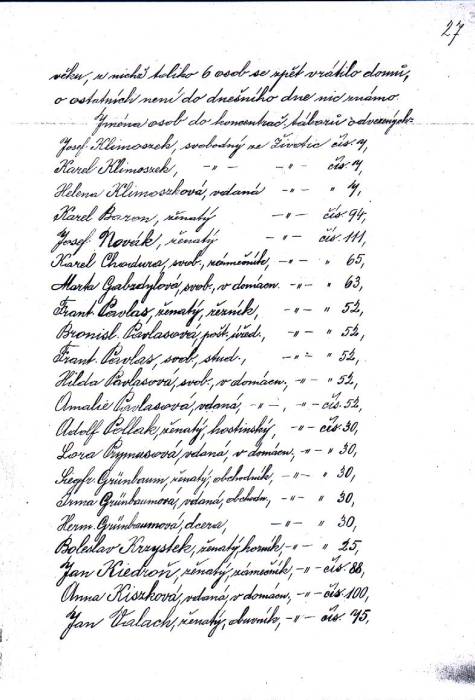 27
věku, z nichž toliko 6 osob se zpět vrátilo domů,
o ostatních není do dnešního dne nic známo.
Jména osob do koncentrač. táborů odvezených:
Josef Klimoszek, svobodný ze Životic čís. 7,
Karel Klimoszek, -"- -"- čís. 7,
Helena Klimoszková, vdaná -"- " 7,
Karel Baron, ženatý -"- čís. 94,
Josef Novák, ženatý -"- čís. 111,
Karel Chodura, svob., zámečník, -"- " 65,
Marta Gabzdylová, svob., v domácn. -"- " 63,
Frant. Pavlas, ženatý, řezník, -"- " 52,
Bronisl. Pavlasová, pošt. úřed., -"- " 52,
Frant. Pavlas, svob., stud., -"- " 52,
Hilda Pavlasová, svob., v domácn., -"- " 52,
Amalie Pavlasová, vdaná, -"-, -"- čís. 52,
Adolf Pollak, ženatý, hostinský, -"- čís. 30,
Lora Prymusová, vdaná, v domácn., -"- " 30,
Siegfr. Grünbaum, ženatý, obchodník, -"- " 30,
Irma Grünbaumová, vdaná, obchodn., -"- " 30,
Herm. Grünbaumová, dcera, -"- " 30,
Boleslav Krzystek, ženatý, horník, -"- " 25,
Jan Kiedroň, ženatý, zámečník, -"- čís. 88,
Anna Kiszková, vdaná, v domácn., -"- čís. 100,
Jan Valach, ženatý, obuvník, -"- čís. 75,